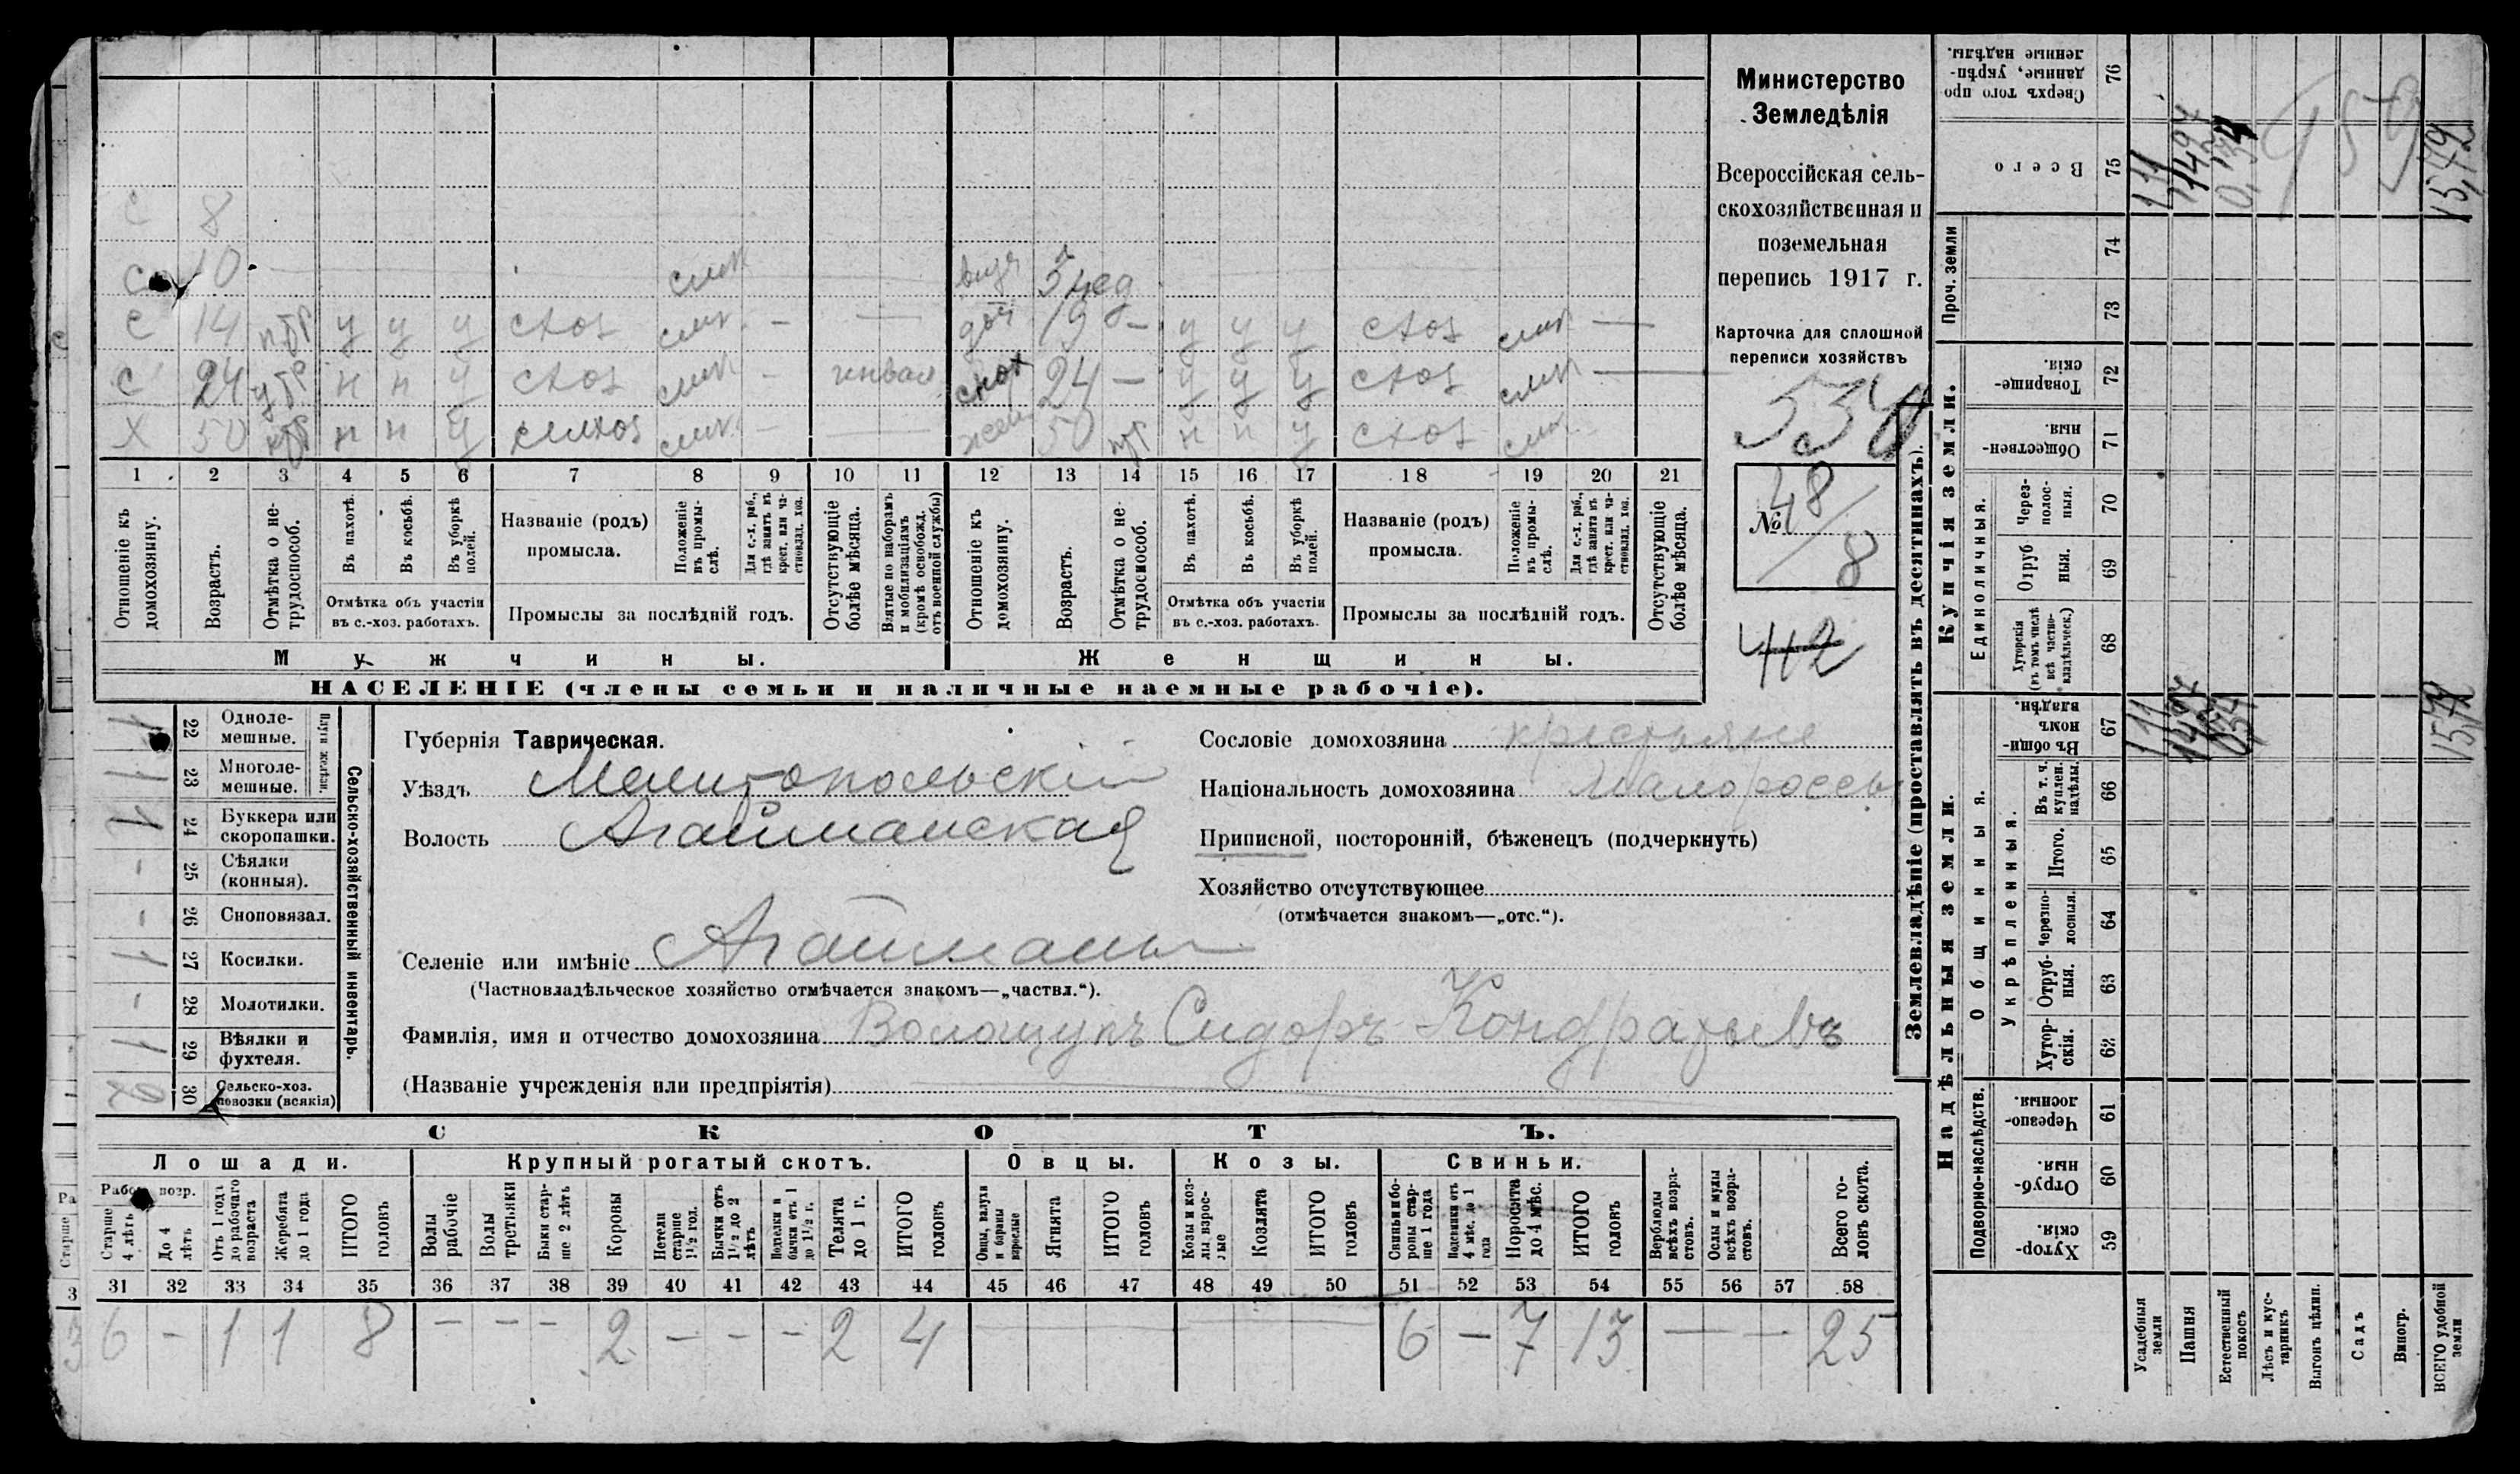 с 8
с 10 слп внуч 3 нед
с 14 нтр у у у схоз слп. - — доч 19 - у у у схоз слп —
с 24 нтр н н у схоз слп - инвал снох 24 — у у у схоз слп —
х 50 нтр н н у селхоз слп. - — жен 50 нтр н н у схоз слп.
1 2 3 4 5 6 7 8 9 10 11 12 13 14 15 16 17 18 19 20 21
Отношеніе къ домохозяину.
Возрастъ.
Отмѣтка о не-трудоспособ.
Въ пахотѣ.
Въ косьбѣ.
Въ уборкѣ полей.
Отмѣтка объ участіи
въ с.-хоз. работахъ.
Названіе (родъ)
промысла.
Положеніе въ промы-слѣ.
Для с.-х. раб., гдѣ занятъ въ крест. или ча-стновлад. хоз.
Промыслы за послѣдній годъ.
Отсутствующіе болѣе мѣсяца.
Взятые по наборамъ и мобилизаціямъ (кромѣ освобожд. отъ военной службы)
Отношеніе къ домохозяину.
Возрастъ.
Отмѣтка о не-трудоспособ.
Въ пахотѣ.
Въ косьбѣ.
Въ уборкѣ полей.
Отмѣтка объ участіи
въ с.-хоз. работахъ.
Названіе (родъ)
промысла.
Положеніе въ промы-слѣ.
Для с.-х. раб., гдѣ занята въ крест. или ча-стновлад. хоз.
Промыслы за послѣдній годъ.
Отсутствующіе болѣе мѣсяца.
Мужчины.
Женщины.
НАСЕЛЕНІЕ (члены семьи и наличные наемные рабочіе).
Министерство
Земледѣлія
Всероссійская сель-
скохозяйственная и
поземельная
перепись 1917 г.
Карточка для сплошной
переписи хозяйствъ
530
№ 48/8
412
Сельско-хозяйственный инвентарь.
Плуги желѣзн.
1 22 Одноле-мешные.
1 23 Многоле-мешные.
1 24 Буккера или скоропашки.
- 25 Сѣялки (конныя).
- 26 Сноповязал.
1 27 Косилки.
- 28 Молотилки.
1 29 Вѣялки и фухтеля.
30 Сельско-хоз. повозки (всякія)
Губернія Таврическая.
Уѣздъ Мелитопольскій
Волость Агайманская
Селеніе или имѣніе Агайманы
(Частновладѣльческое хозяйство отмѣчается знакомъ—„частвл.“).
Фамилія, имя и отчество домохозяина Волощукъ Сидоръ Кондратьевъ
(Названіе учрежденія или предпріятія)
Сословіе домохозяина крестьяне
Національность домохозяина Малороссы
Приписной, посторонній, бѣженецъ (подчеркнуть)
Хозяйство отсутствующее
(отмѣчается знакомъ—„отс.“).
СКОТЪ.
Лошади. Крупный рогатый скотъ. Овцы. Козы. Свиньи.
Рабоч. возр.
Старше 4 лѣтъ
До 4 лѣтъ
Отъ 1 года до рабочаго возраста
Жеребята до 1 года
ИТОГО головъ
Волы рабочіе
Волы третьяки
Быки стар-ше 2 лѣтъ
Коровы
Нетели старше 1½ год.
Бычки отъ 1½ до 2 лѣтъ
Нетелки и бычки отъ 1 до 1½ г.
Телята до 1 г.
ИТОГО головъ
Овцы, валухи и бараны взрослые
Ягнята
ИТОГО головъ
Козы и коз-лы взрос-лые
Козлята
ИТОГО головъ
Свиньи и бо-ровы стар-ше 1 года
Подсвинки отъ 4 мѣс. до 1 года
Поросята до 4 мѣс.
ИТОГО головъ
Верблюды всѣхъ возра-стовъ.
Ослы и мулы всѣхъ возра-стовъ.
Всего го-ловъ скота.
31 32 33 34 35 36 37 38 39 40 41 42 43 44 45 46 47 48 49 50 51 52 53 54 55 56 57 58
6 - 1 1 8 - - - 2 - - - 2 4 — 6 - 7 13 — — 25
Землевладѣніе (проставлять въ десятинахъ).
Надѣльныя земли.
Купчія земли.
Проч. земли
Подворно-наслѣдств.
Общинныя.
Укрѣпленныя.
Единоличныя.
Сверхъ того про данные, укрѣп-ленные надѣлы. 76
Всего 75
74
73
Товарище-скія. 72
Обществен-ныя. 71
Через-полос-ныя. 70
Отруб ныя. 69
Хуторскія (въ томъ числѣ всѣ частно-владѣльческ.) 68
Въ общи-номъ владѣн. 67
Въ т. ч. куплен. надѣлы. 66
Итого. 65
Черезпо-лосныя. 64
Отруб-ныя. 63
Хутор-скія. 62
Черезпо-лосныя. 61
Отруб-ныя. 60
Хутор-скія. 59
Усадебныя земли
Пашня
Естественный покосъ
Лѣсъ и кус-тарникъ
Выгонъ цѣлин.
Садъ
Виногр.
ВСЕГО удобной земли
959